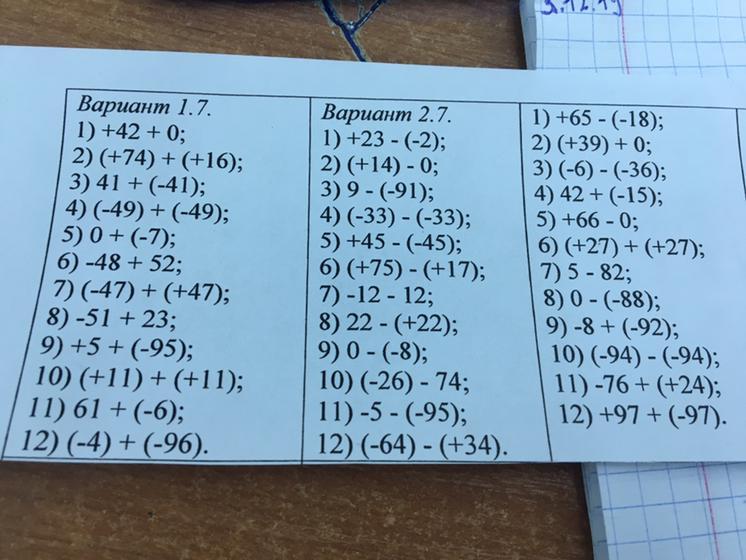 3.12.19
Вариант 1.7.
1) +42 + 0;
2) (+74) + (+16);
3) 41 + (-41);
4) (-49) + (-49);
5) 0 + (-7);
6) -48 + 52;
7) (-47) + (+47);
8) -51 + 23;
9) +5 + (-95);
10) (+11) + (+11);
11) 61 + (-6);
12) (-4) + (-96).
Вариант 2.7.
1) +23 - (-2);
2) (+14) - 0;
3) 9 - (-91);
4) (-33) - (-33);
5) +45 - (-45);
6) (+75) - (+17);
7) -12 - 12;
8) 22 - (+22);
9) 0 - (-8);
10) (-26) - 74;
11) -5 - (-95);
12) (-64) - (+34).
1) +65 - (-18);
2) (+39) + 0;
3) (-6) - (-36);
4) 42 + (-15);
5) +66 - 0;
6) (+27) + (+27);
7) 5 - 82;
8) 0 - (-88);
9) -8 + (-92);
10) (-94) - (-94);
11) -76 + (+24);
12) +97 + (-97).